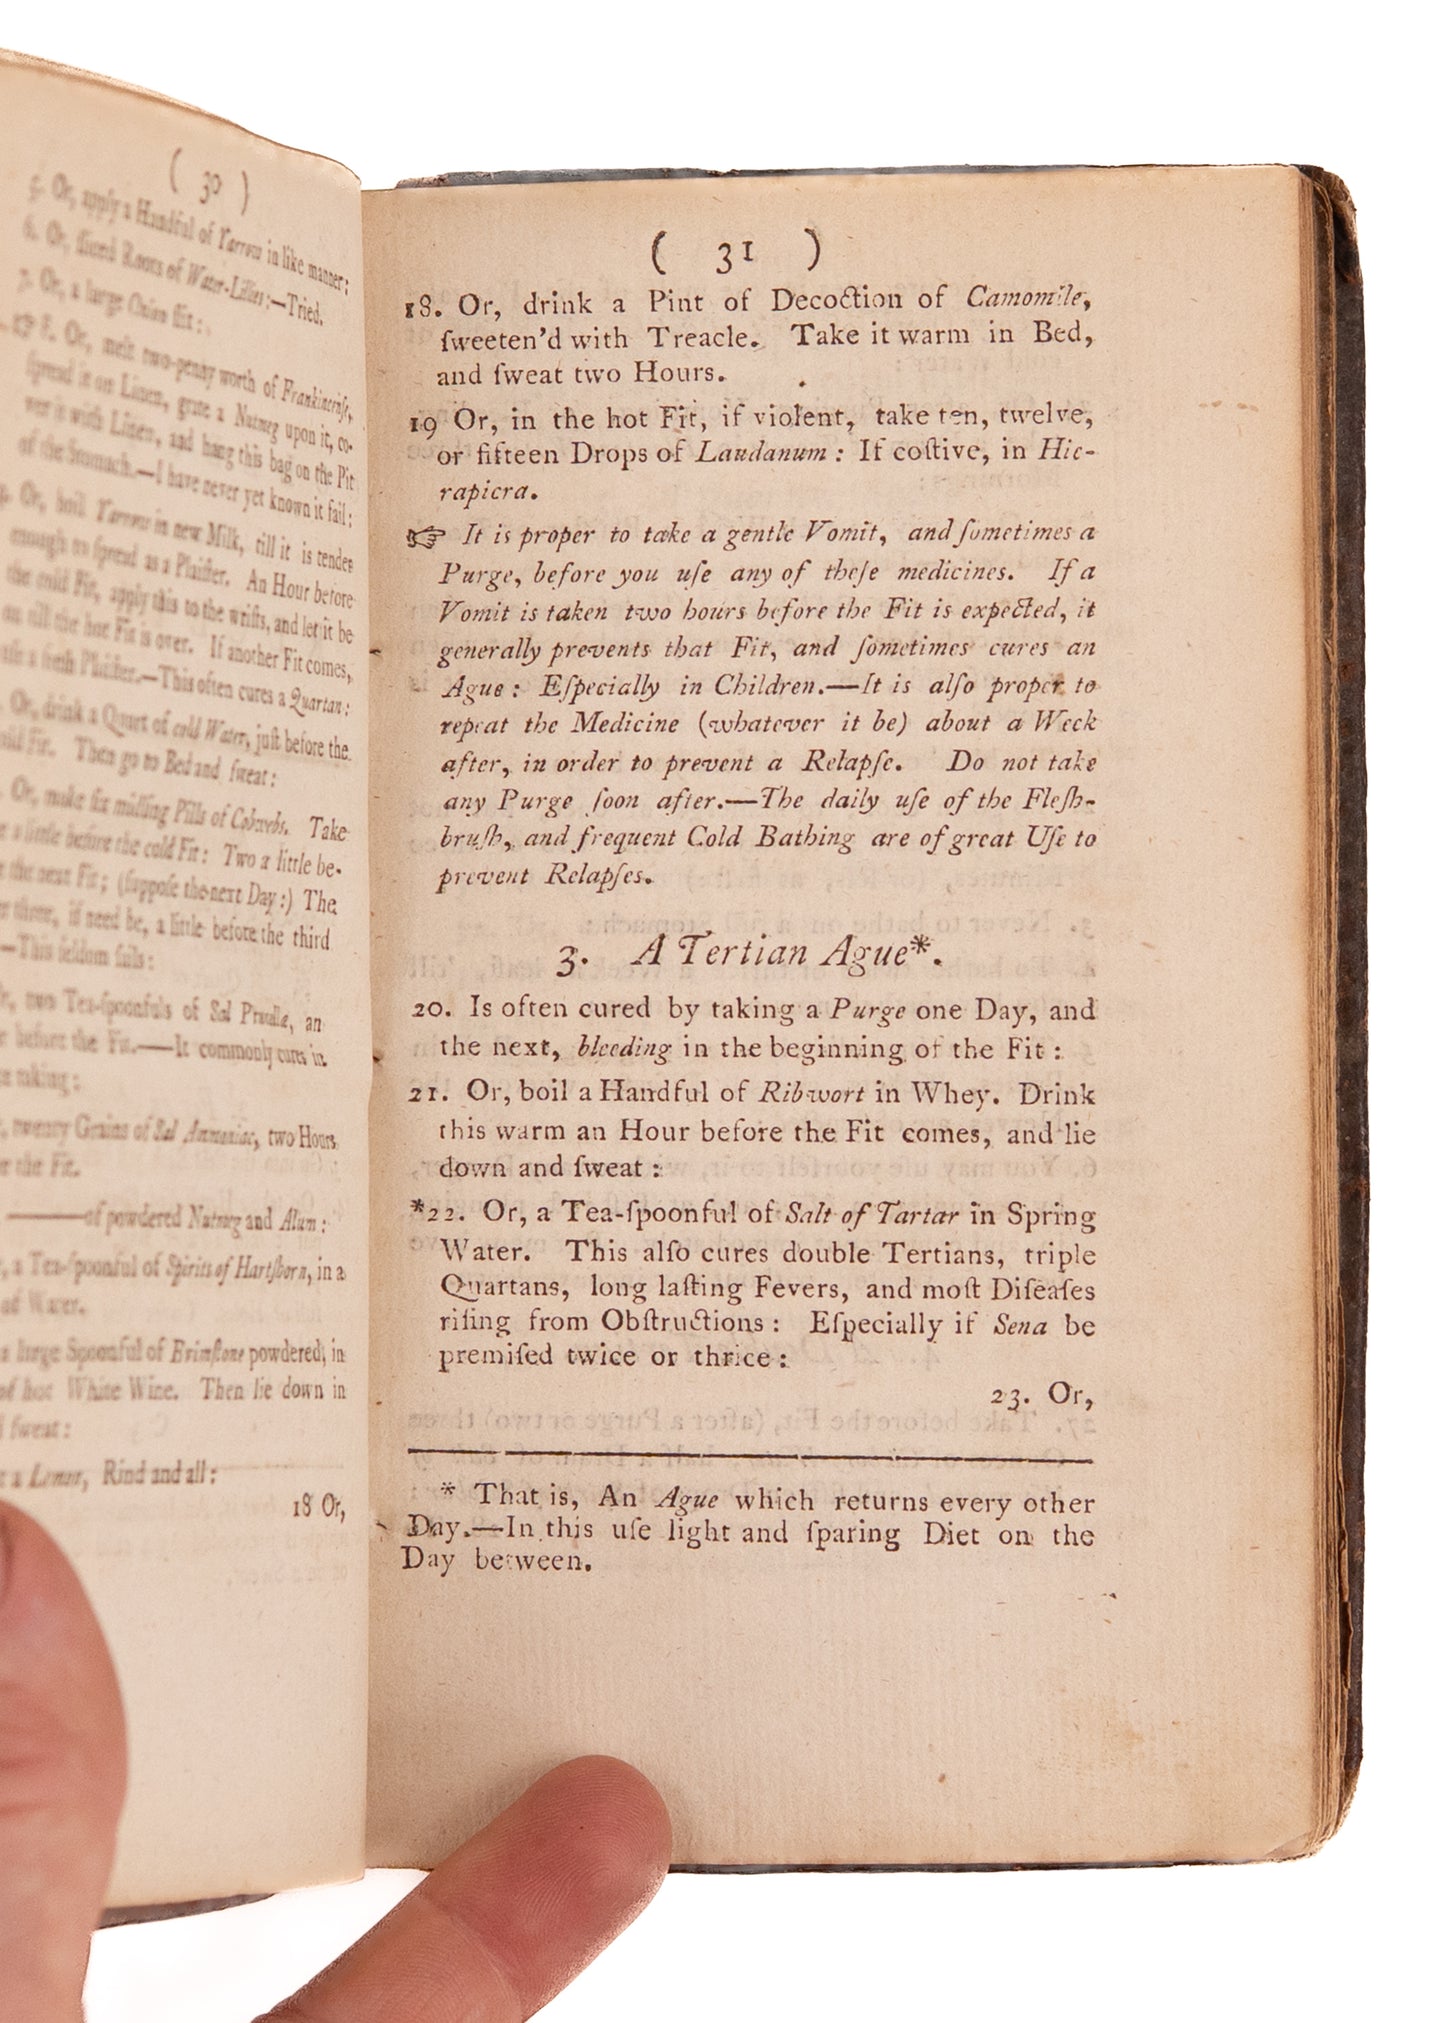 ( 30 )
5. Or, apply a Handful of Yarrow in like manner:
6. Or, sliced Roots of Water-Lilies:—Tried.
7. Or, a large Onion slit:
8. Or, melt two-penny worth of Frankincense,
spread it on Linen, grate a Nutmeg upon it, co-
ver it with Linen, and hang this bag on the Pit
of the Stomach.—I have never yet known it fail:
Or, boil Yarrow in new Milk, till it is tender
enough to ſpread as a Plaiſter. An Hour before
the cold Fit, apply this to the wriſts, and let it be
on till the hot Fit is over. If another Fit comes,
a freſh Plaiſter.—This often cures a Quartan:
Or, drink a Quart of cold Water, juſt before the
cold Fit. Then go to Bed and ſweat:
Or, make ſix middling Pills of Cobwebs. Take
a little before the cold Fit: Two a little be-
the next Fit; (ſuppoſe the next Day:) The
three, if need be, a little before the third
—This ſeldom fails:
two Tea-ſpoonfuls of Sal Prunellæ, an
before the Fit.——It commonly cures in
taking:
twenty Grains of Sal Ammoniac, two Hours
the Fit.
———of powdered Nutmeg and Alum:
a Tea-ſpoonful of Spirits of Hartſhorn, in a
of Water.
a large Spoonful of Brimſtone powdered, in
of hot White Wine. Then lie down in
ſweat:
a Lemon, Rind and all:
18 Or,
( 31 )
18. Or, drink a Pint of Decoction of Camomile,
ſweeten'd with Treacle. Take it warm in Bed,
and ſweat two Hours.
19 Or, in the hot Fit, if violent, take ten, twelve,
or fifteen Drops of Laudanum: If coſtive, in Hie-
rapicra.
☞ It is proper to take a gentle Vomit, and ſometimes a
Purge, before you uſe any of theſe medicines. If a
Vomit is taken two hours before the Fit is expected, it
generally prevents that Fit, and ſometimes cures an
Ague: Eſpecially in Children.—It is alſo proper to
repeat the Medicine (whatever it be) about a Week
after, in order to prevent a Relapſe. Do not take
any Purge ſoon after.—The daily uſe of the Fleſh-
bruſh, and frequent Cold Bathing are of great Uſe to
prevent Relapſes.
3. A Tertian Ague*.
20. Is often cured by taking a Purge one Day, and
the next, bleeding in the beginning of the Fit:
21. Or, boil a Handful of Ribwort in Whey. Drink
this warm an Hour before the Fit comes, and lie
down and ſweat:
*22. Or, a Tea-ſpoonful of Salt of Tartar in Spring
Water. This alſo cures double Tertians, triple
Quartans, long laſting Fevers, and moſt Diſeaſes
riſing from Obſtructions: Eſpecially if Sena be
premiſed twice or thrice:
23. Or,
* That is, An Ague which returns every other
Day.—In this uſe light and ſparing Diet on the
Day between.